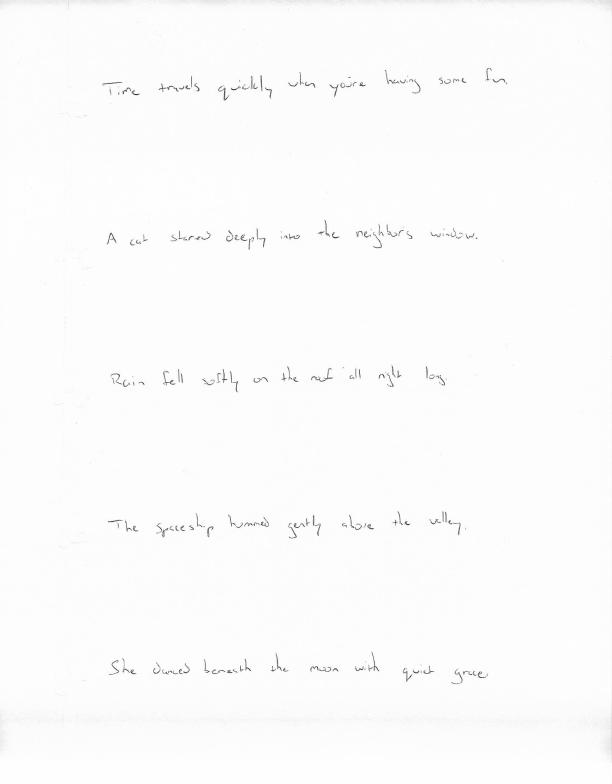 Time travels quickly when you're having some fun.
A cat stared deeply into the neighbor's window.
Rain fell softly on the roof all night long
The spaceship hummed gently above the valley.
She danced beneath the moon with quiet grace